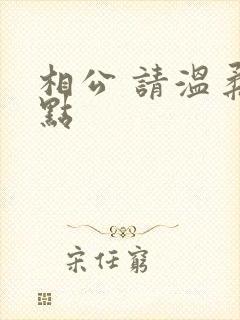 相公 請溫柔
點
宋任窮